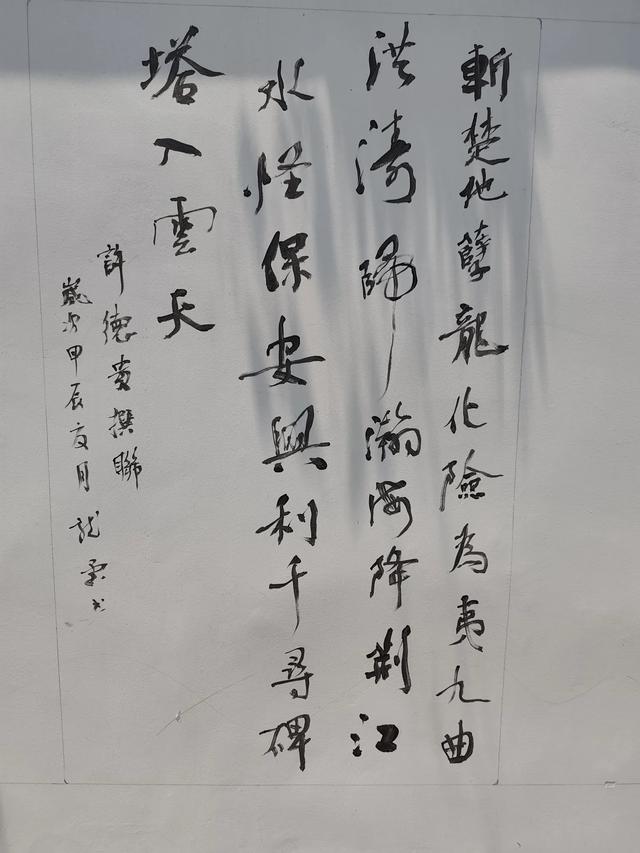 斬楚地孽龍化險為夷九曲
洪濤歸瀚海降荆江
水怪保安興利千尋碑
塔入雲天
許德貴撰聯
歲次甲辰夏月龍